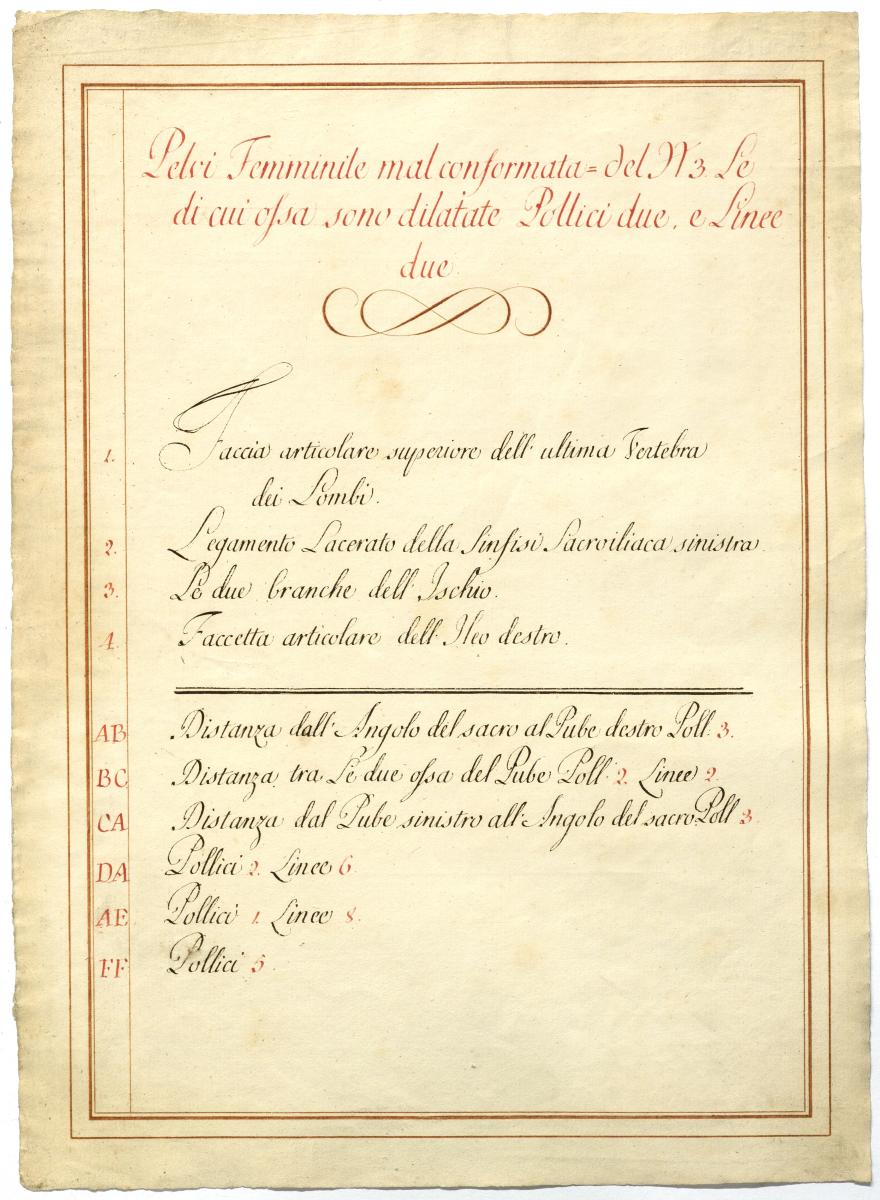 Pelvi Femminile mal conformata = del N 3. Le
di cui ossa sono dilatate Pollici due, e Linee
due.
1. Faccia articolare superiore dell' ultima Vertebra
dei Lombi.
2. Legamento Lacerato della Sinfisi Sacroiliaca sinistra.
3. Le due branche dell' Ischio.
4. Faccetta articolare dell' Ileo destro.
AB Distanza dall' Angolo del sacro al Pube destro Poll. 3.
BC Distanza tra Le due ossa del Pube Poll. 2. Linee 2.
CA Distanza dal Pube sinistro all' Angolo del sacro Poll 3.
DA Pollici 2. Linee 6.
AE Pollici 1. Linee 8.
FF Pollici 5.